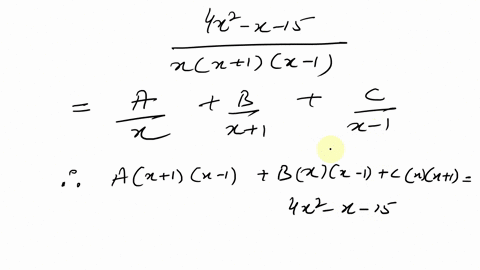 4x² - x - 15
x(x+1)(x-1)
= A/x + B/x+1 + C/x-1
∴ A(x+1)(x-1) + B(x)(x-1) + C(x)(x+1) =
4x² - x - 15